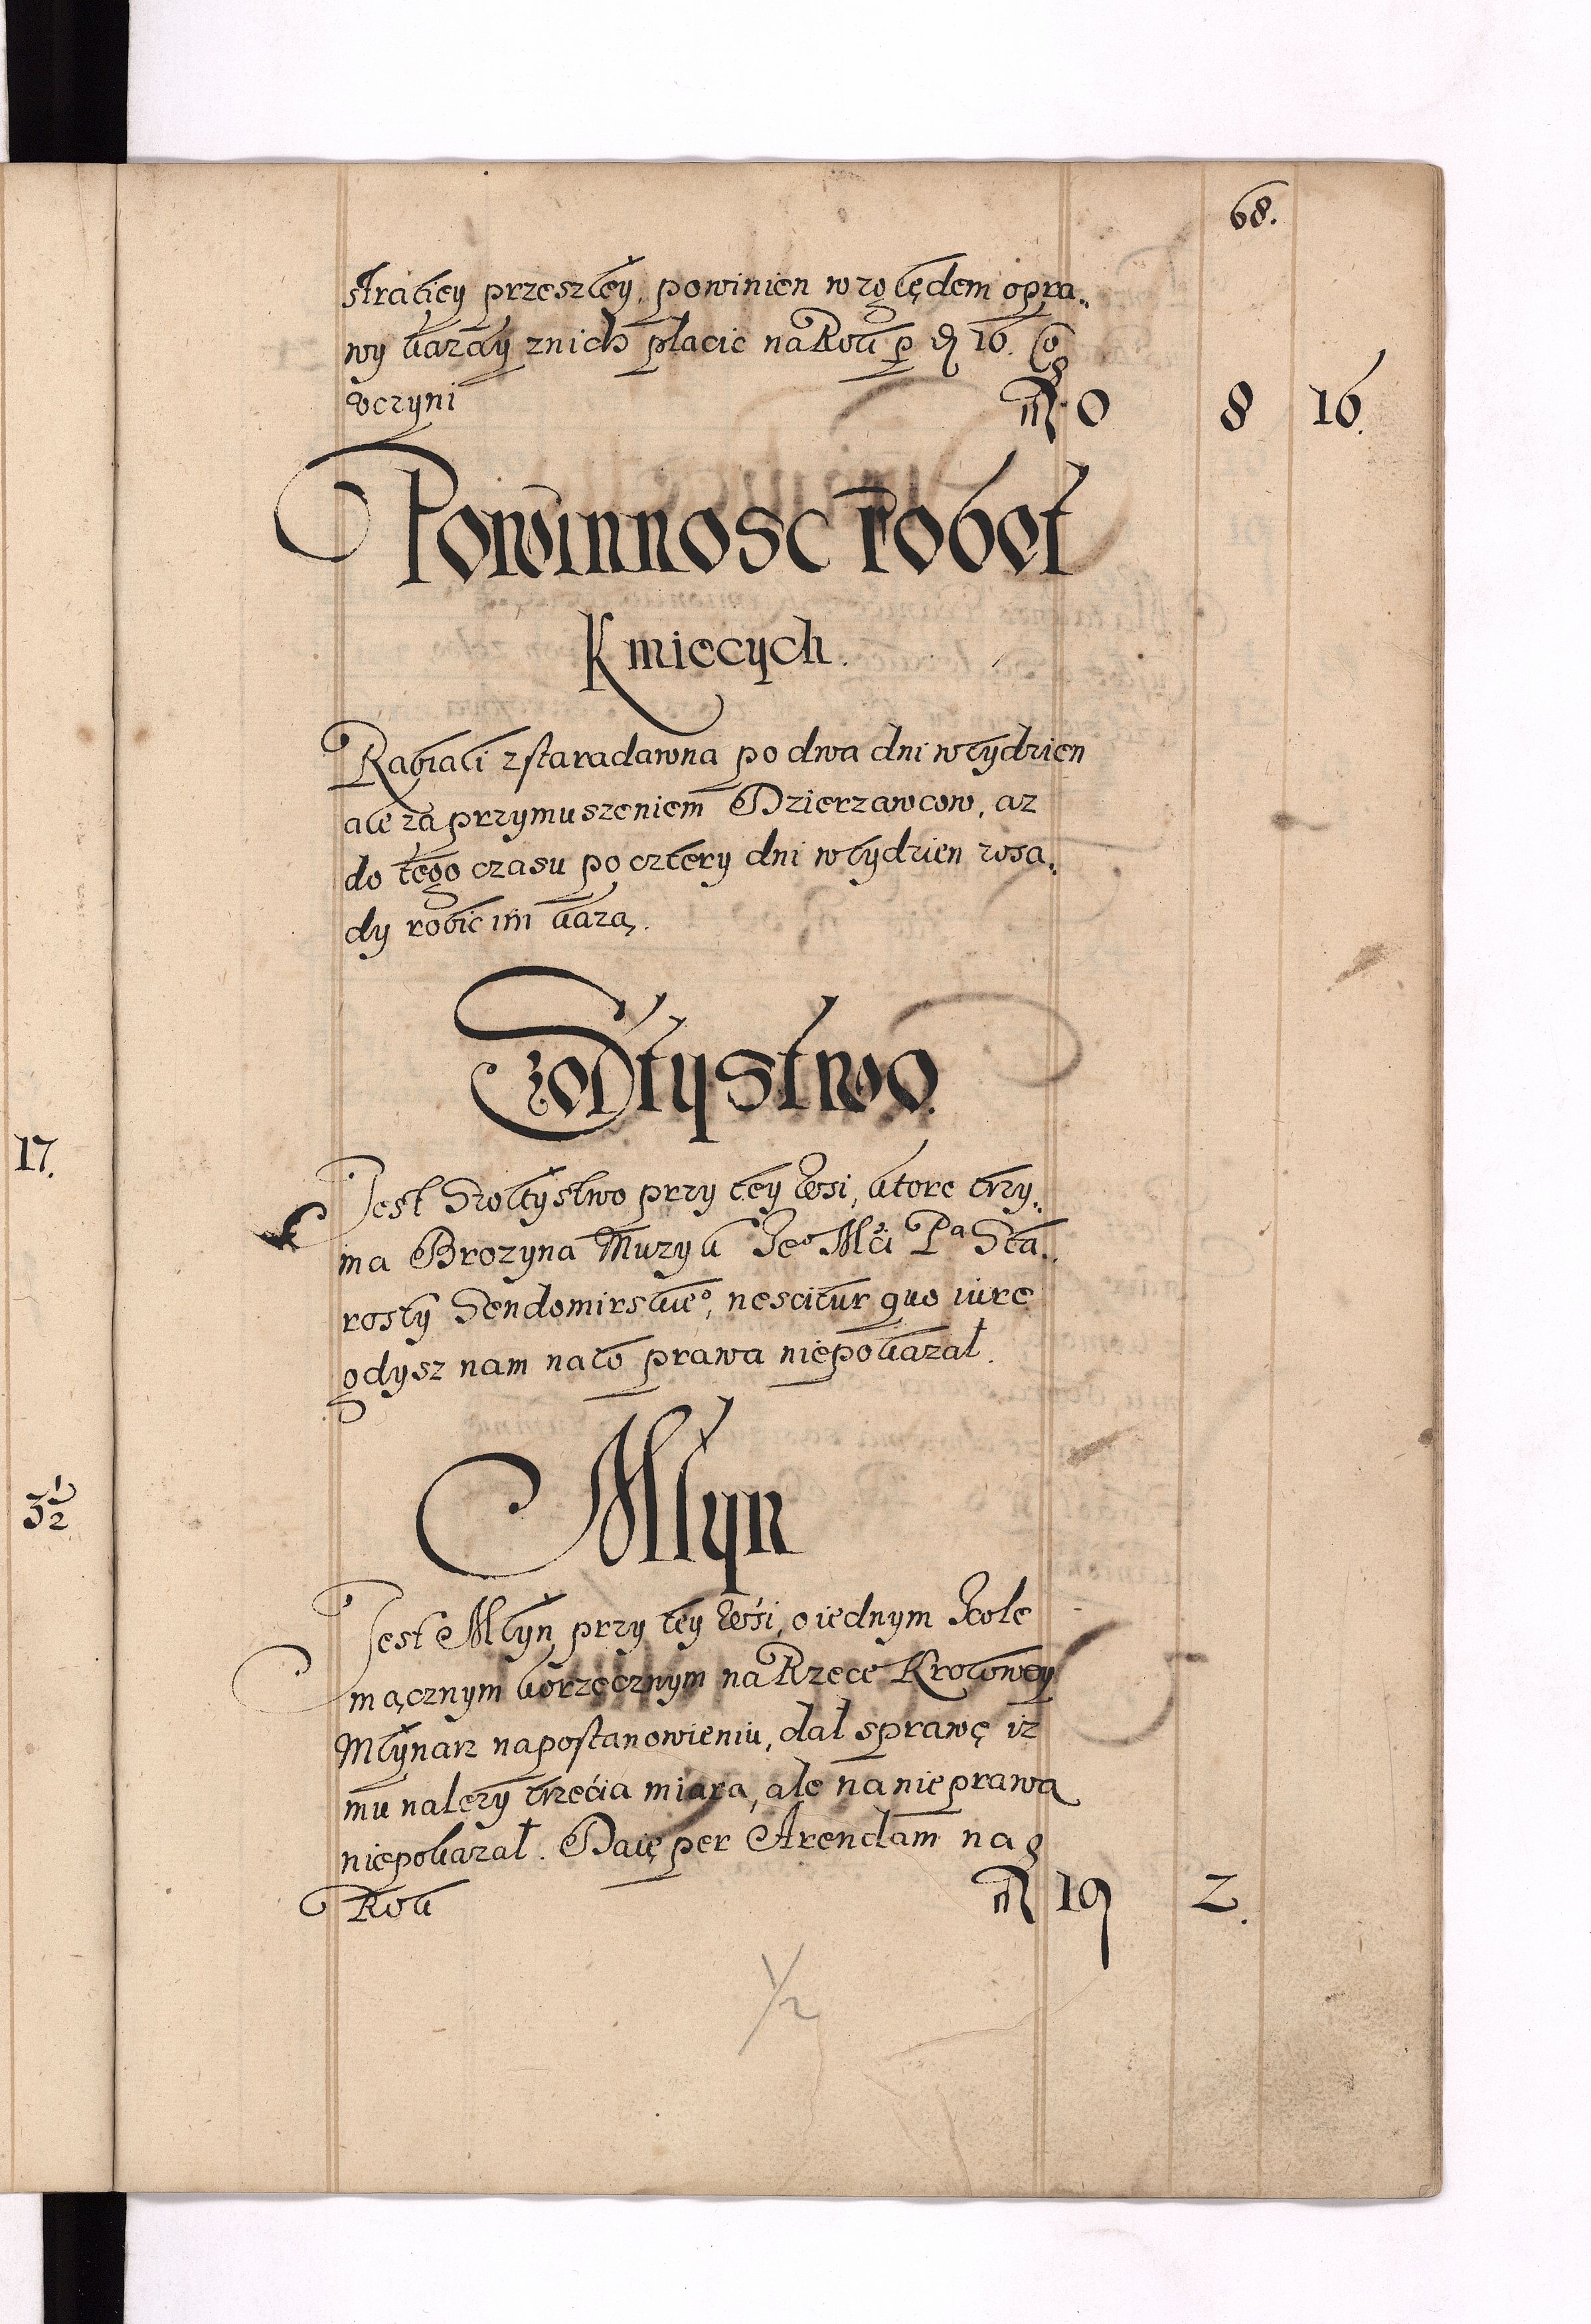 68.
straciey przeszłey, powinien względem opra„
wy każdy z nich płacic na Rok p d 16. Co
vczyni
m 0 8 16.
Powinnosc robot
Kmiecych.
Rabiali z staradawna po dwa dni w tydzien
ale za przymuszeniem Dzierzawcow, az
do tego czasu po cztery dni w tydzien zosa„
dy robic im kazą.
Szołtystwo.
17.
Jest Szołtystwo przy tey Wsi, ktore trzy„
ma Brozyna Muzyk Jeº Mći Pª Sta„
rosty Sendomirskieº, nescitur quo iure
gdysz nam na to prawa niepokazał.
Młyn
3 1/2
Jest Młyn przy tey Wsi, o iednym Kole
mącznym korzecznym na Rzece Krotowey
Młynarz na postanowieniu, dał sprawę iz
mu nalezy trzecia miara, ale na nie prawa
niepokazał. Daię per Arendam na
Rok m 19 2.
1/2